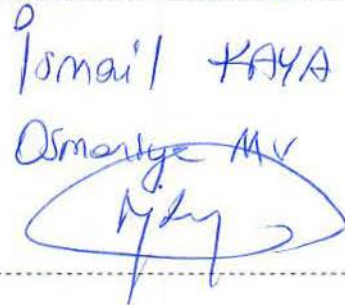 İsmail KAYA
Osmaniye Mv